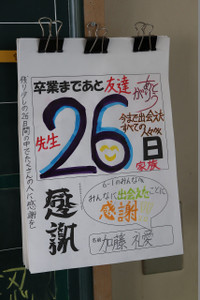 卒業まであと
友達
先生
26日
今まで出会えた
すべての人々
家族
残り少しの26日間の中でたくさんの人に感謝を
感謝
6-1のみんな
みんなに出会えたことに
感謝
名前
加藤 礼愛